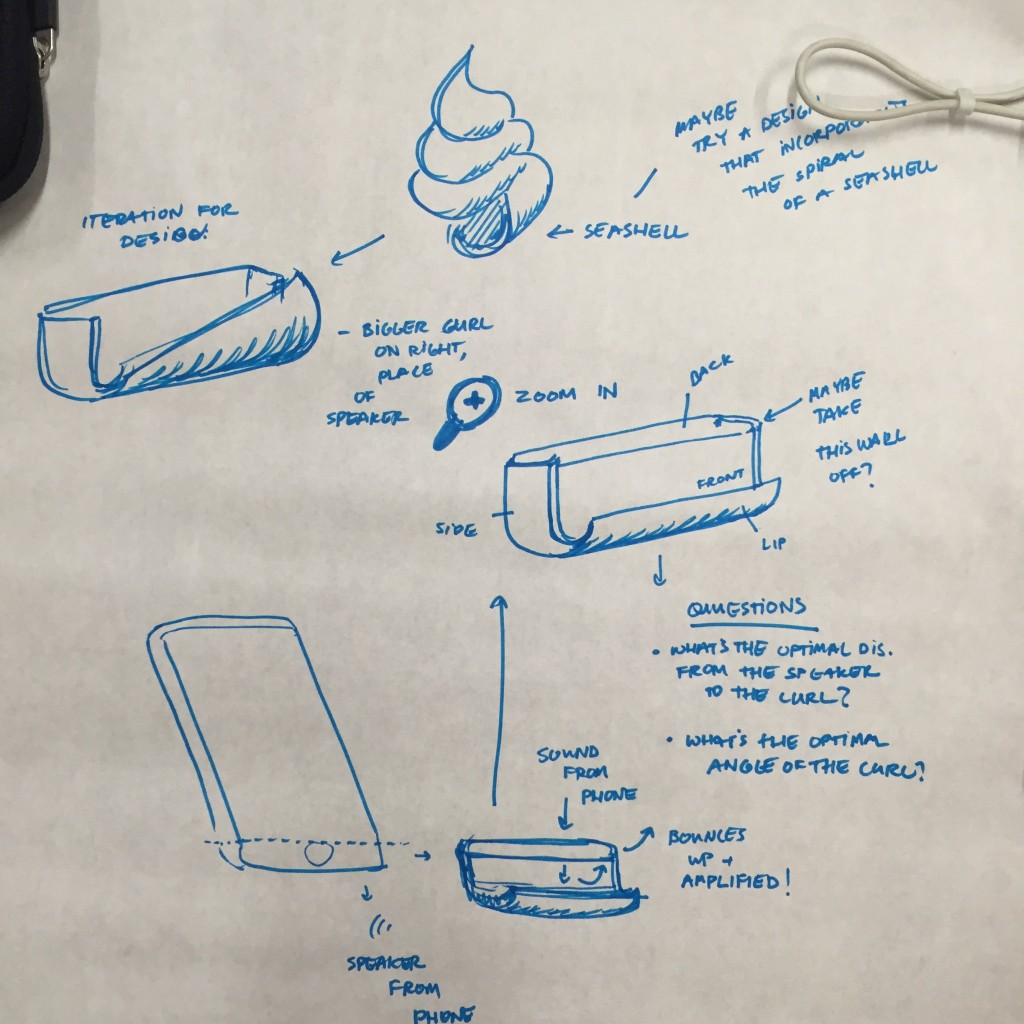 MAYBE
TRY A DESIGN
THAT INCORPORATES
THE SPIRAL
OF A SEASHELL
← SEASHELL
ITERATION FOR
DESIGN!
- BIGGER CURL
ON RIGHT,
PLACE
OF
SPEAKER
+ ZOOM IN
BACK
MAYBE
TAKE
THIS WALL
OFF?
FRONT
SIDE
LIP
QUESTIONS
• WHAT'S THE OPTIMAL DIS.
FROM THE SPEAKER
TO THE CURL?
• WHAT'S THE OPTIMAL
ANGLE OF THE CURL?
SOUND
FROM
PHONE
BOUNCES
UP +
AMPLIFIED!
SPEAKER
FROM
PHONE